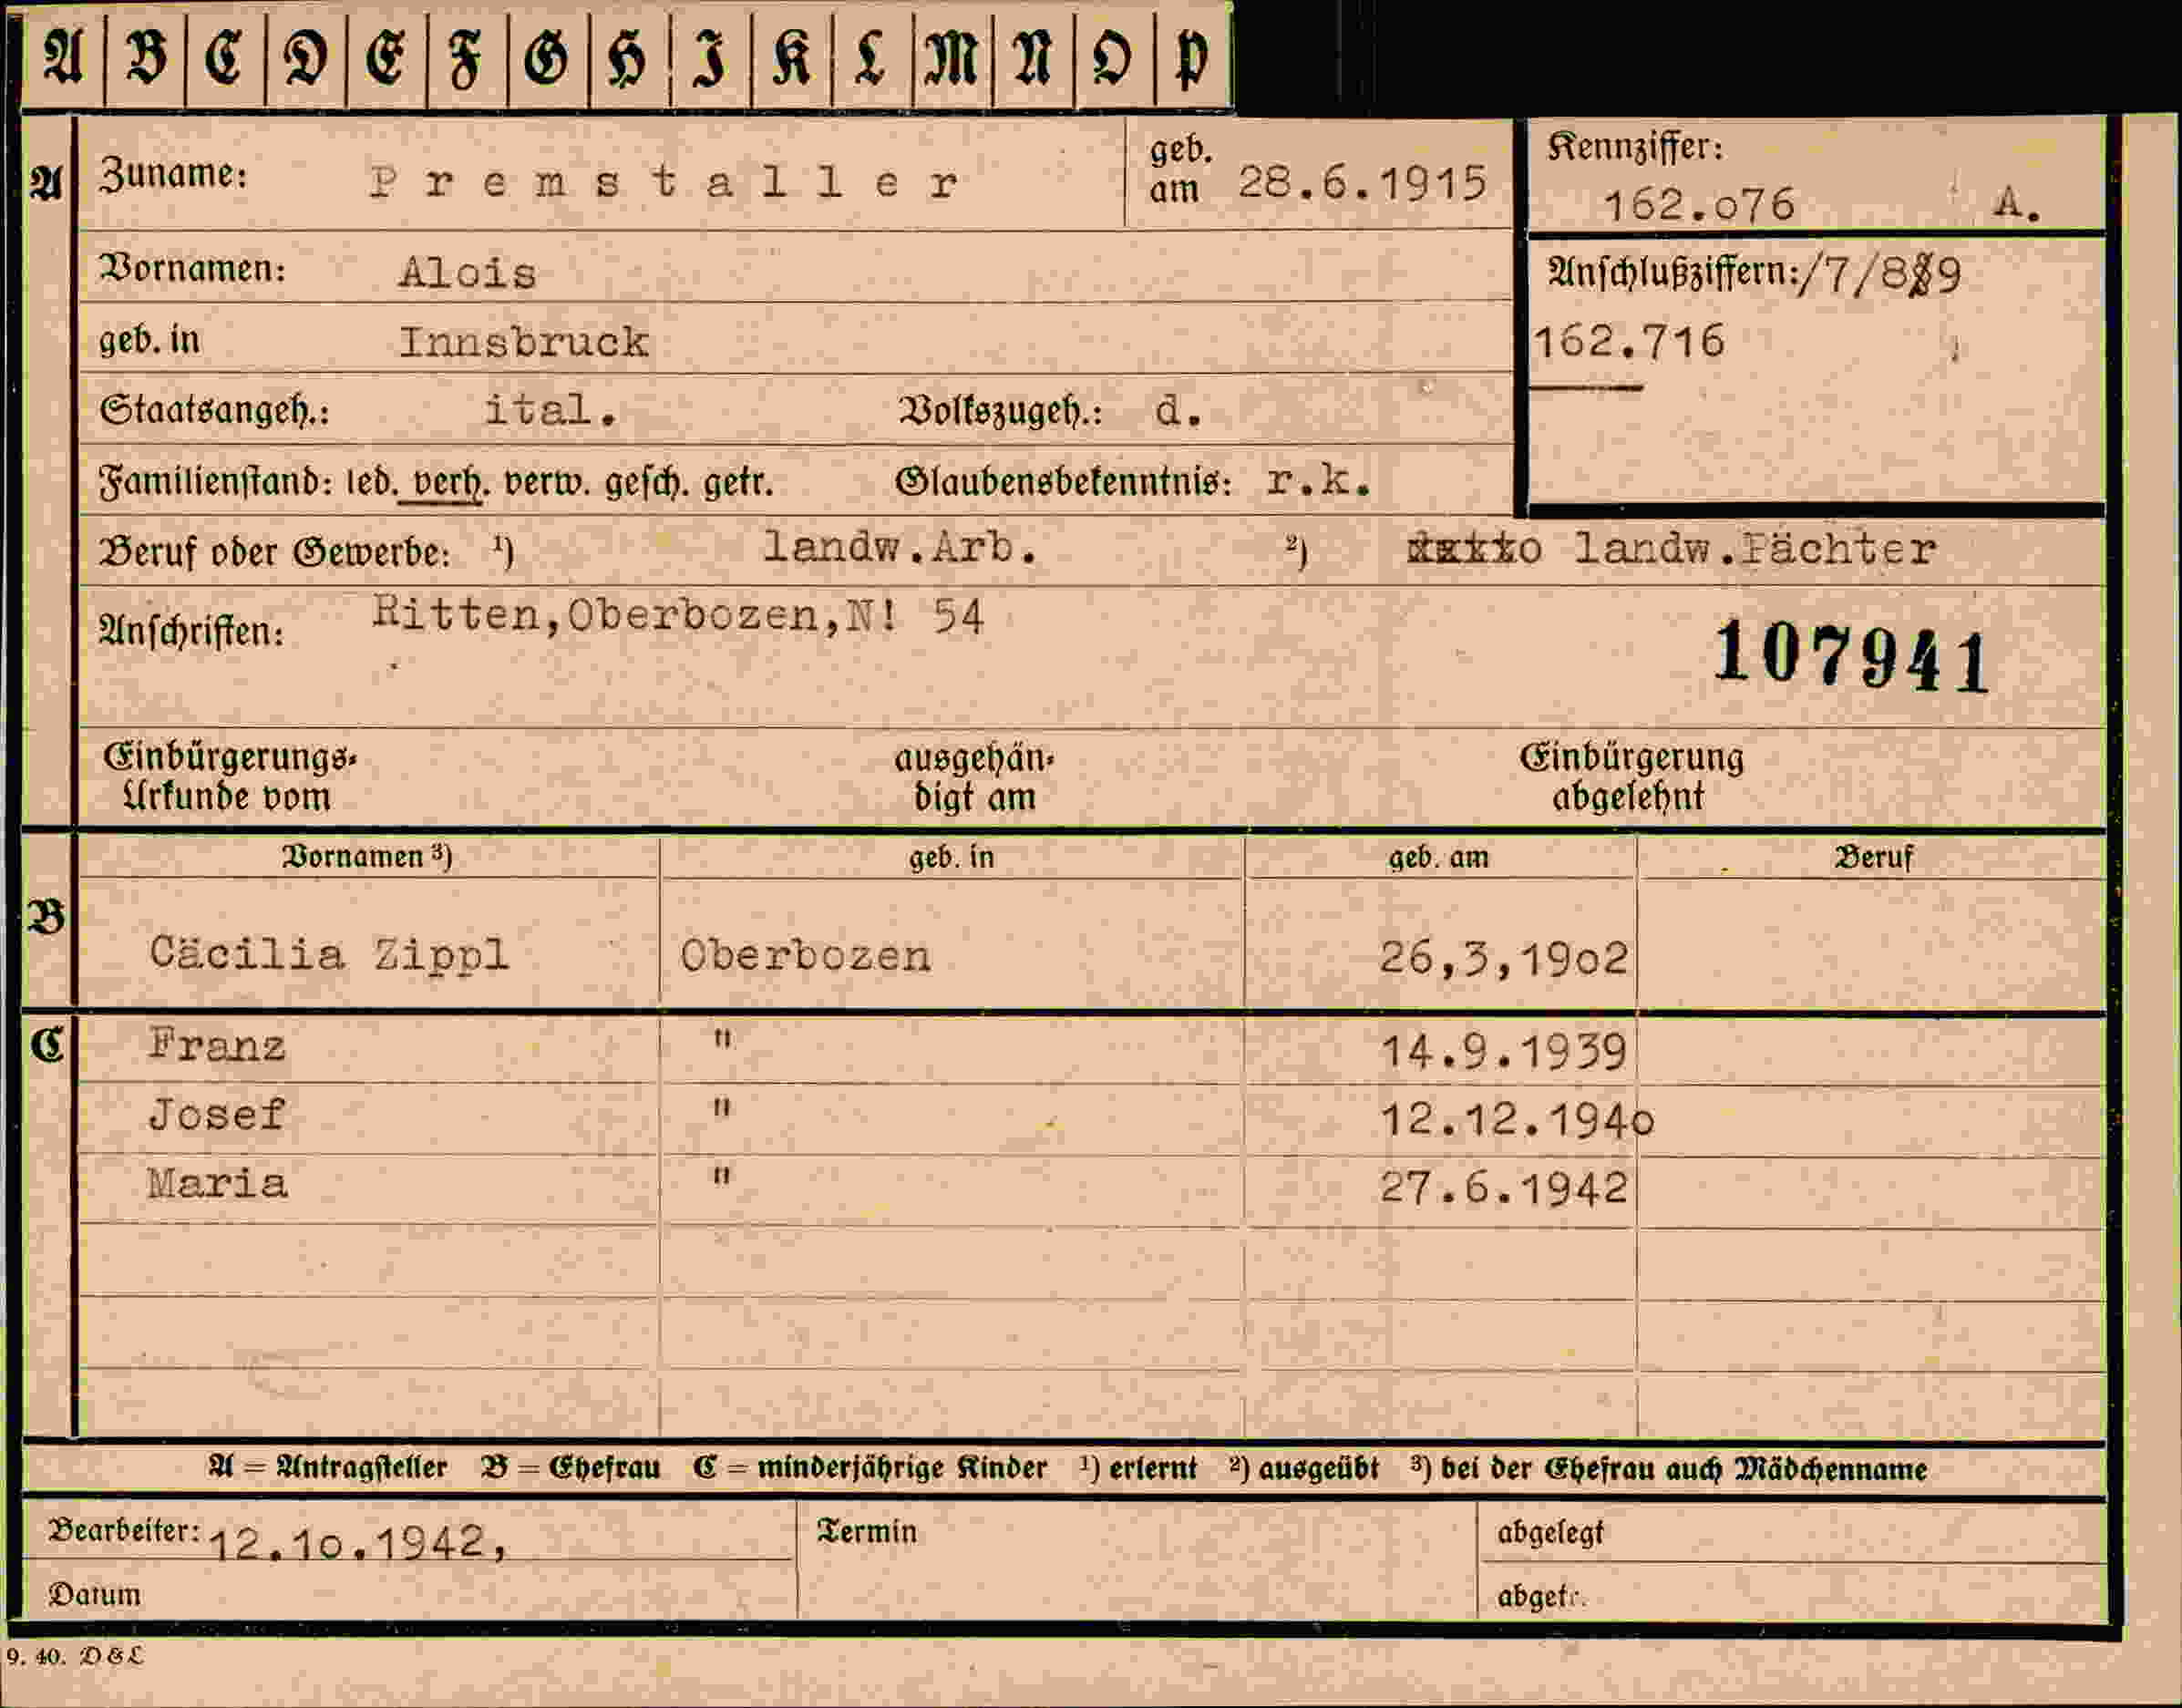 A B C D E F G H I K L M N O P
A Zuname: Premstaller geb. am 28.6.1915
Kennziffer: 162.o76 A.
Vornamen: Alois
Anschlußziffern:/7/8 9
geb. in Innsbruck
162.716
Staatsangeh.: ital. Volkszugeh.: d.
Familienstand: led. verh. verw. gesch. getr. Glaubensbekenntnis: r.k.
Beruf oder Gewerbe: ¹) landw.Arb. ²) landw.Pächter
Anschriften: Ritten,Oberbozen,N! 54
107941
Einbürgerungs-
Urkunde vom
ausgehän-
digt am
Einbürgerung
abgelehnt
Vornamen ³) geb. in geb. am Beruf
B Cäcilia Zippl Oberbozen 26,3,19o2
C Franz " 14.9.1939
Josef " 12.12.194o
Maria " 27.6.1942
A = Antragsteller B = Ehefrau C = minderjährige Kinder ¹) erlernt ²) ausgeübt ³) bei der Ehefrau auch Mädchenname
Bearbeiter: 12.1o.1942, Termin abgelegt
Datum abgetr.
9. 40. D & L